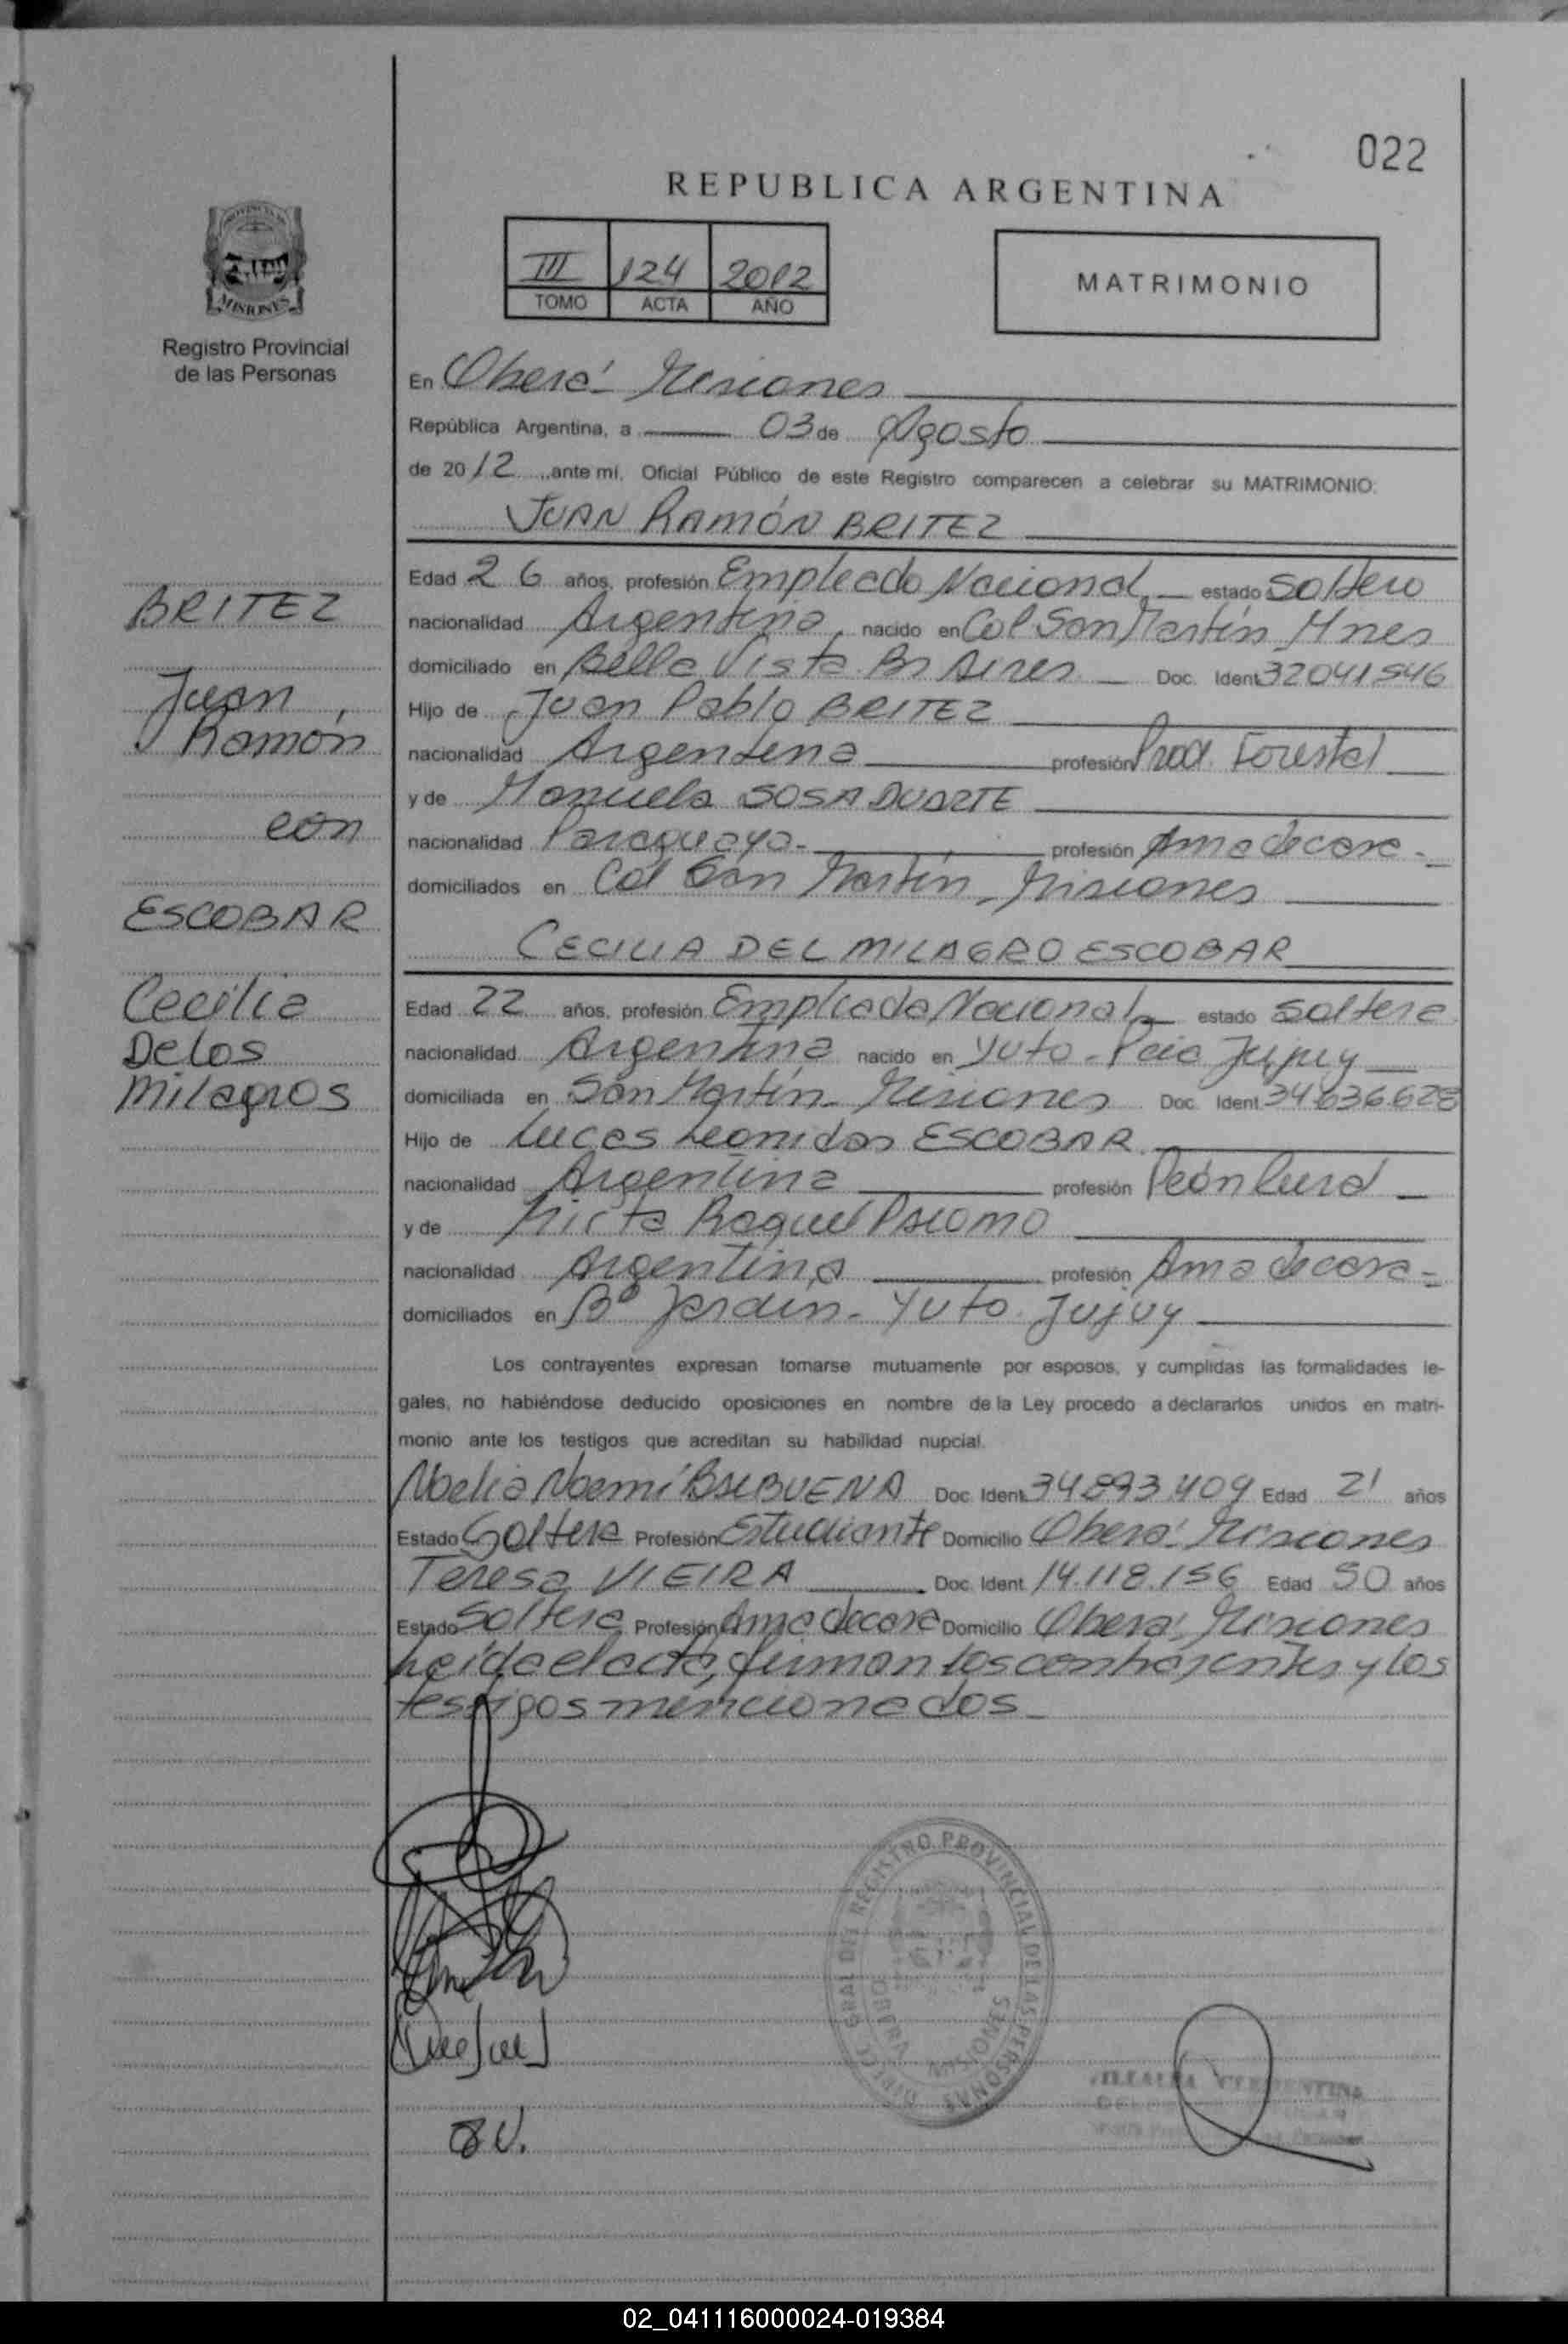 022
REPUBLICA ARGENTINA
III 124 2012
TOMO ACTA AÑO
MATRIMONIO
PROVINCIA DE
MISIONES
Registro Provincial
de las Personas
En Oberá - Misiones
República Argentina, a 03 de Agosto
de 2012 ante mi, Oficial Público de este Registro comparecen a celebrar su MATRIMONIO:
JUAN RAMÓN BRITEZ
Edad 26 años, profesión Empleado Nacional, estado soltero
nacionalidad Argentina, nacido en Col San Martín Mnes
domiciliado en Bella Vista Bs Aires Doc. Ident 32041546
Hijo de Juan Pablo BRITEZ
nacionalidad Argentina profesión Prod. Forestal
y de Manuela SOSA DUARTE
nacionalidad Paraguaya- profesión Ama de casa-
domiciliados en Col San Martín, Misiones
CECILIA DEL MILAGRO ESCOBAR
Edad 22 años, profesión Empleada Nacional, estado soltera
nacionalidad Argentina nacido en Yuto - Pcia Jujuy
domiciliada en San Martín - Misiones Doc. Ident 34.636.628
Hijo de Lucas Leonidas ESCOBAR
nacionalidad Argentina profesión Peón Rural
y de Mirta Raquel PALOMO
nacionalidad Argentina profesión Ama de casa-
domiciliados en Bº Jardín - Yuto Jujuy
Los contrayentes expresan tomarse mutuamente por esposos, y cumplidas las formalidades le-
gales, no habiéndose deducido oposiciones en nombre de la Ley procedo a declararlos unidos en matri-
monio ante los testigos que acreditan su habilidad nupcial.
Noelia Noemí BALBUENA Doc. Ident 34.893.409 Edad 21 años
Estado Soltera Profesión Estudiante Domicilio Oberá - Misiones
Teresa VIEIRA Doc. Ident 14.118.156 Edad 50 años
Estado Soltera Profesión Ama de casa Domicilio Oberá, Misiones
Leída el acta, firman los contrayentes y los
testigos mencionados
BRITEZ
Juan
Ramón
con
ESCOBAR
Cecilia
Delos
Milagros
DIRECC GRAL DEL REGISTRO PROVINCIAL DE LAS PERSONAS
OBERA MISIONES
02_041116000024-019384